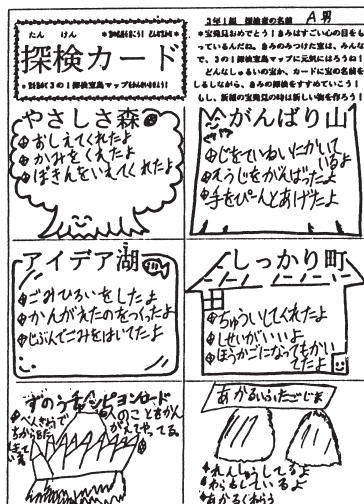 たん けん
探検カード
3年1組 探検者の名前 A男
*宝発見おめでとう!きみはすごい心の目をも
っているんだね。きみのみつけた宝は、みんな
で、3の1探検宝島マップに元気にはろうね!
どんなしゅるいの宝か、カードに宝の名前を
しるしながら、きみの探検をすすめていこう!
もし、新種の宝発見の時は新しい物を作ろう!
やさしさ森
おしえてくれたよ
かみをくれたよ
ぼきんをいれてくれたよ
がんばり山
じをていねいにかいて
いるよ
そうじをがんばったよ
手をぴーんとあげたよ
アイデア湖
ごみひろいをしたよ
かんがえたのをつくったよ
じぶんでごみをはいてたよ
しっかり町
ちゅういしてくれたよ
しせいがいいよ
ほうかごになってもかい
てたよ
ずのうチャンピオンロード
人のこともかん
がえてやってる。
あかるいふたごじま
れんしゅうしてるよ
あかるくわらう